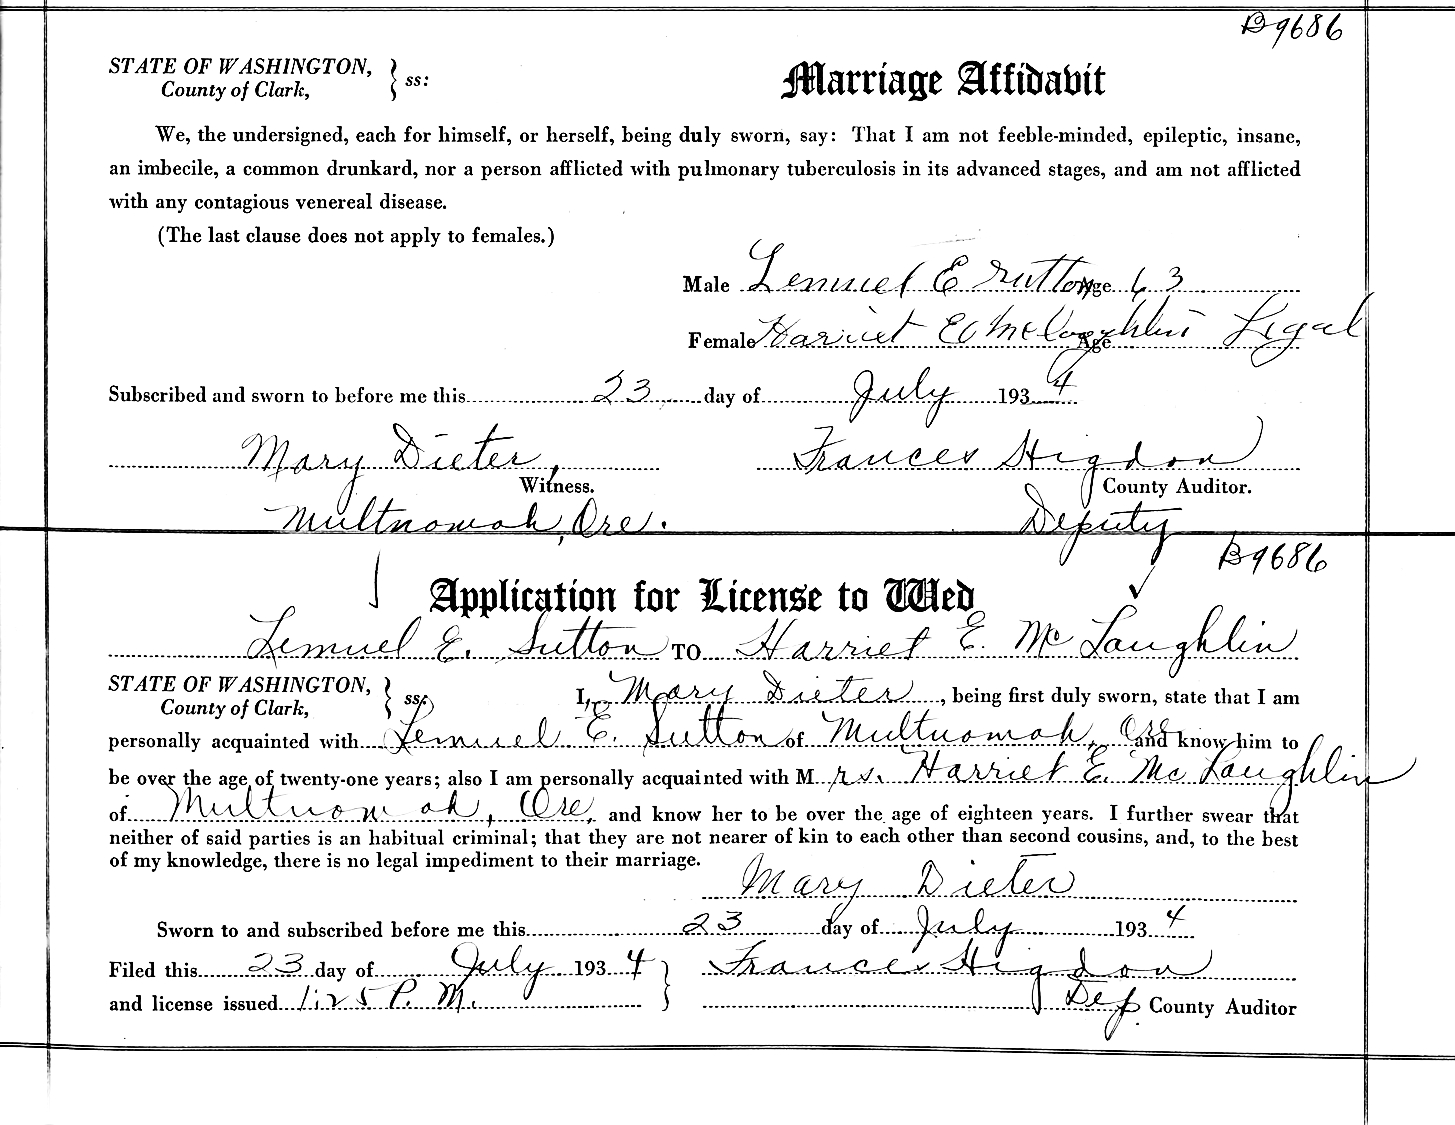 B9686
STATE OF WASHINGTON, } ss:
County of Clark,
Marriage Affidavit
We, the undersigned, each for himself, or herself, being duly sworn, say: That I am not feeble-minded, epileptic, insane,
an imbecile, a common drunkard, nor a person afflicted with pulmonary tuberculosis in its advanced stages, and am not afflicted
with any contagious venereal disease.
(The last clause does not apply to females.)
Male Lemuel E Sutton Age 63
Female Harriet E McLaughlin Age Legal
Subscribed and sworn to before me this 23 day of July 1934
Mary Dieter, Frances Higdon
Witness. County Auditor.
Multnomah, Ore. Deputy
B9686
Application for License to Wed
Lemuel E. Sutton TO Harriet E. McLaughlin
STATE OF WASHINGTON, } ss: I, Mary Dieter, being first duly sworn, state that I am
County of Clark,
personally acquainted with Lemuel E. Sutton of Multnomah, Ore and know him to
be over the age of twenty-one years; also I am personally acquainted with Mrs. Harriet E. McLaughlin
of Multnomah, Ore, and know her to be over the age of eighteen years. I further swear that
neither of said parties is an habitual criminal; that they are not nearer of kin to each other than second cousins, and, to the best
of my knowledge, there is no legal impediment to their marriage.
Mary Dieter
Sworn to and subscribed before me this 23 day of July 1934
Filed this 23 day of July 1934 } Frances Higdon
and license issued 1:25 P. M. Dep County Auditor